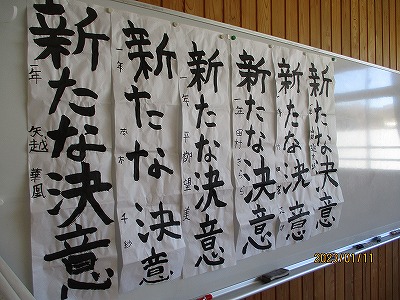 新たな決意
一年 矢越 華凰
新たな決意
一年
新たな決意
一年 平柳 望
新たな決意
一年 田村 きらら
新たな決意
新たな決意
2023/01/11